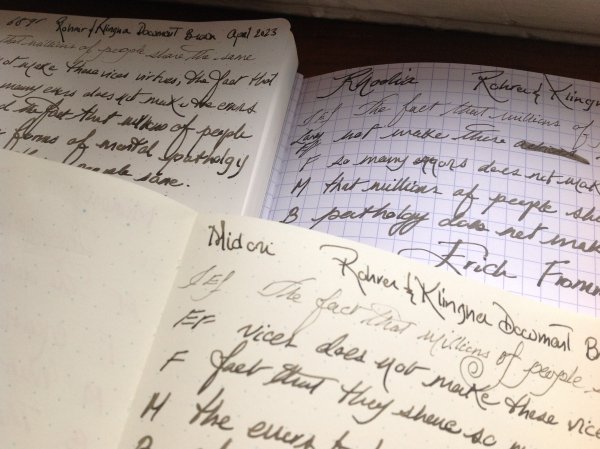 68gr Rohrer & Klingner Document Brown April 2023
that millions of people share the same
not make these vices virtues, the fact that
many errors does not make the errors
and the fact that millions of people
forms of mental pathology
people sane.
Rhodia Rohrer & Klingner
EF The fact that millions of
not make these
F so many errors does not make
M that millions of people sha
B pathology does not mak
Erich Fromm
Midori Rohrer & Klingner Document B
EF The fact that millions of people
EF vices does not make these vice
F fact that they share so m
M the errors to b
B